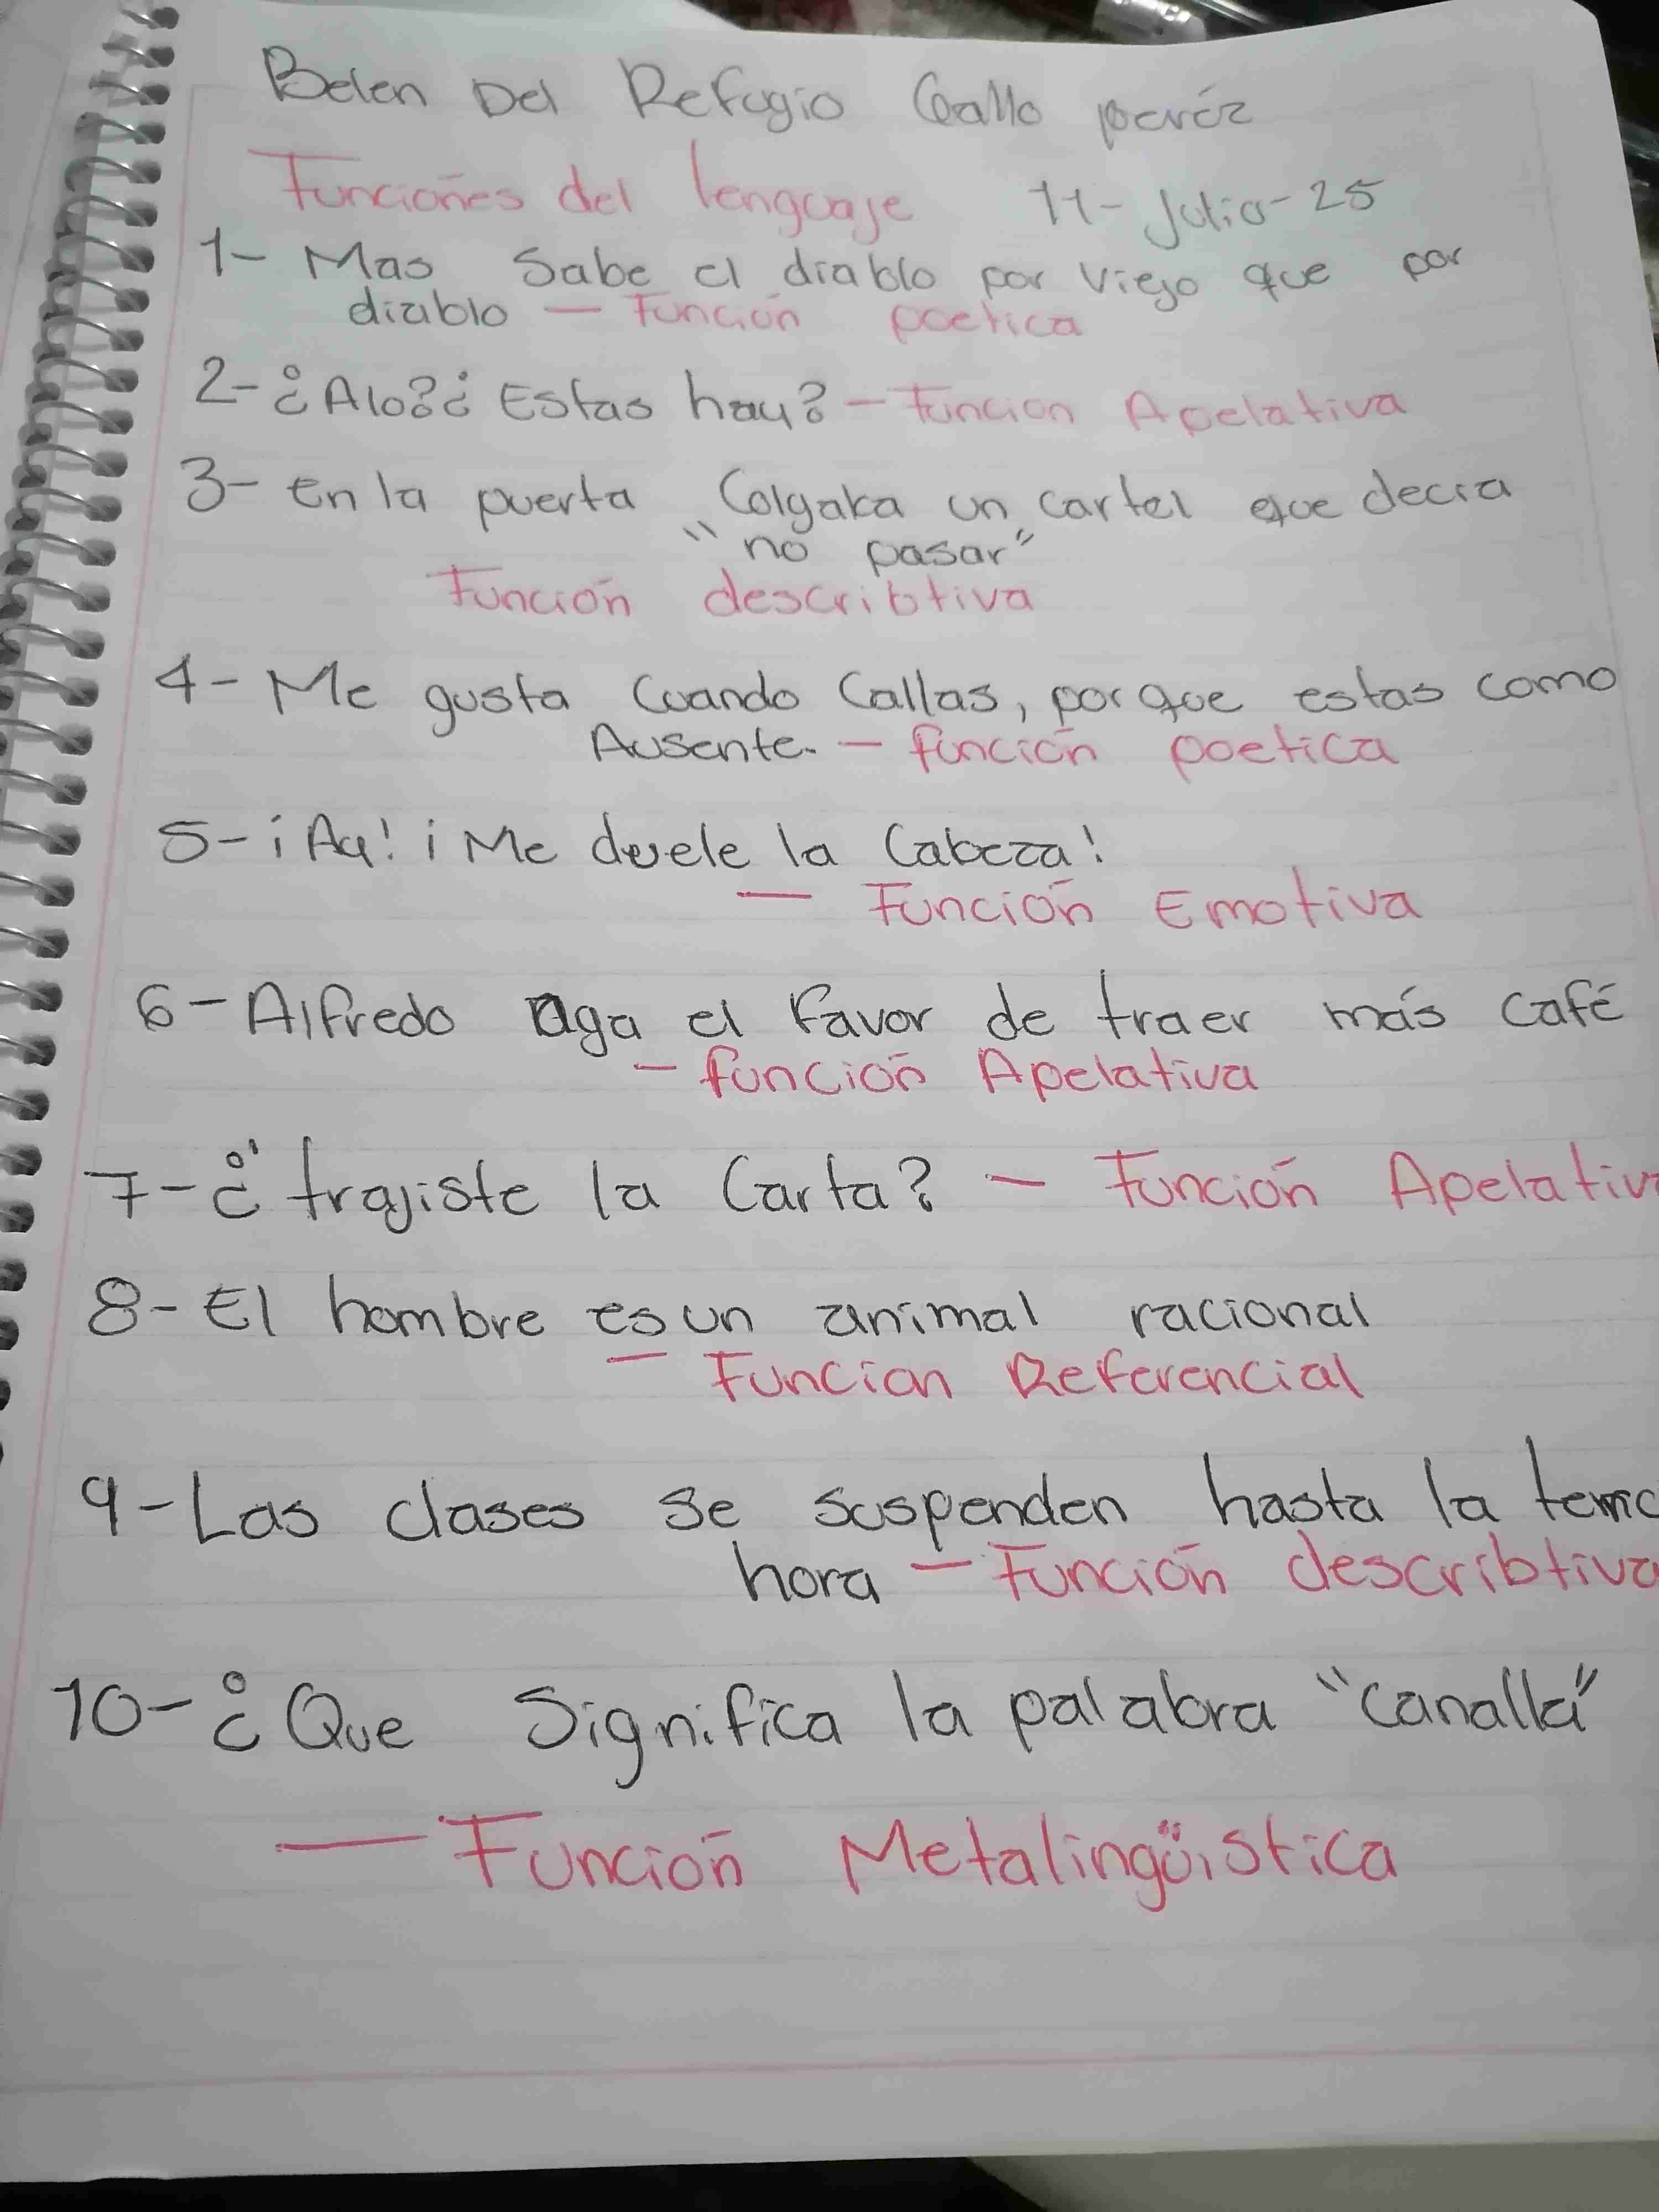 Belen Del Refugio Gallo peréz
Funciones del lenguaje 11-Julio-25
1- Mas Sabe el diablo por viejo que por
diablo — Función poetica
2- ¿Alo?¿ Estas hay? — Funcion Apelativa
3- En la puerta Colgaba un cartel que decia
"no pasar"
Función describtiva
4- Me gusta Cuando Callas, porque estas como
Ausente. — función poetica
5- ¡Ay! ¡Me duele la Cabeza!
— Función Emotiva
6- Alfredo aga el favor de traer más café
— función Apelativa
7- ¿ trajiste la Carta? — Función Apelativ
8- El hombre es un animal racional
— Funcion Referencial
9- Las clases se suspenden hasta la
hora — Función describtiva
10- ¿Que Significa la palabra "canalla"
— Función Metalingüistica